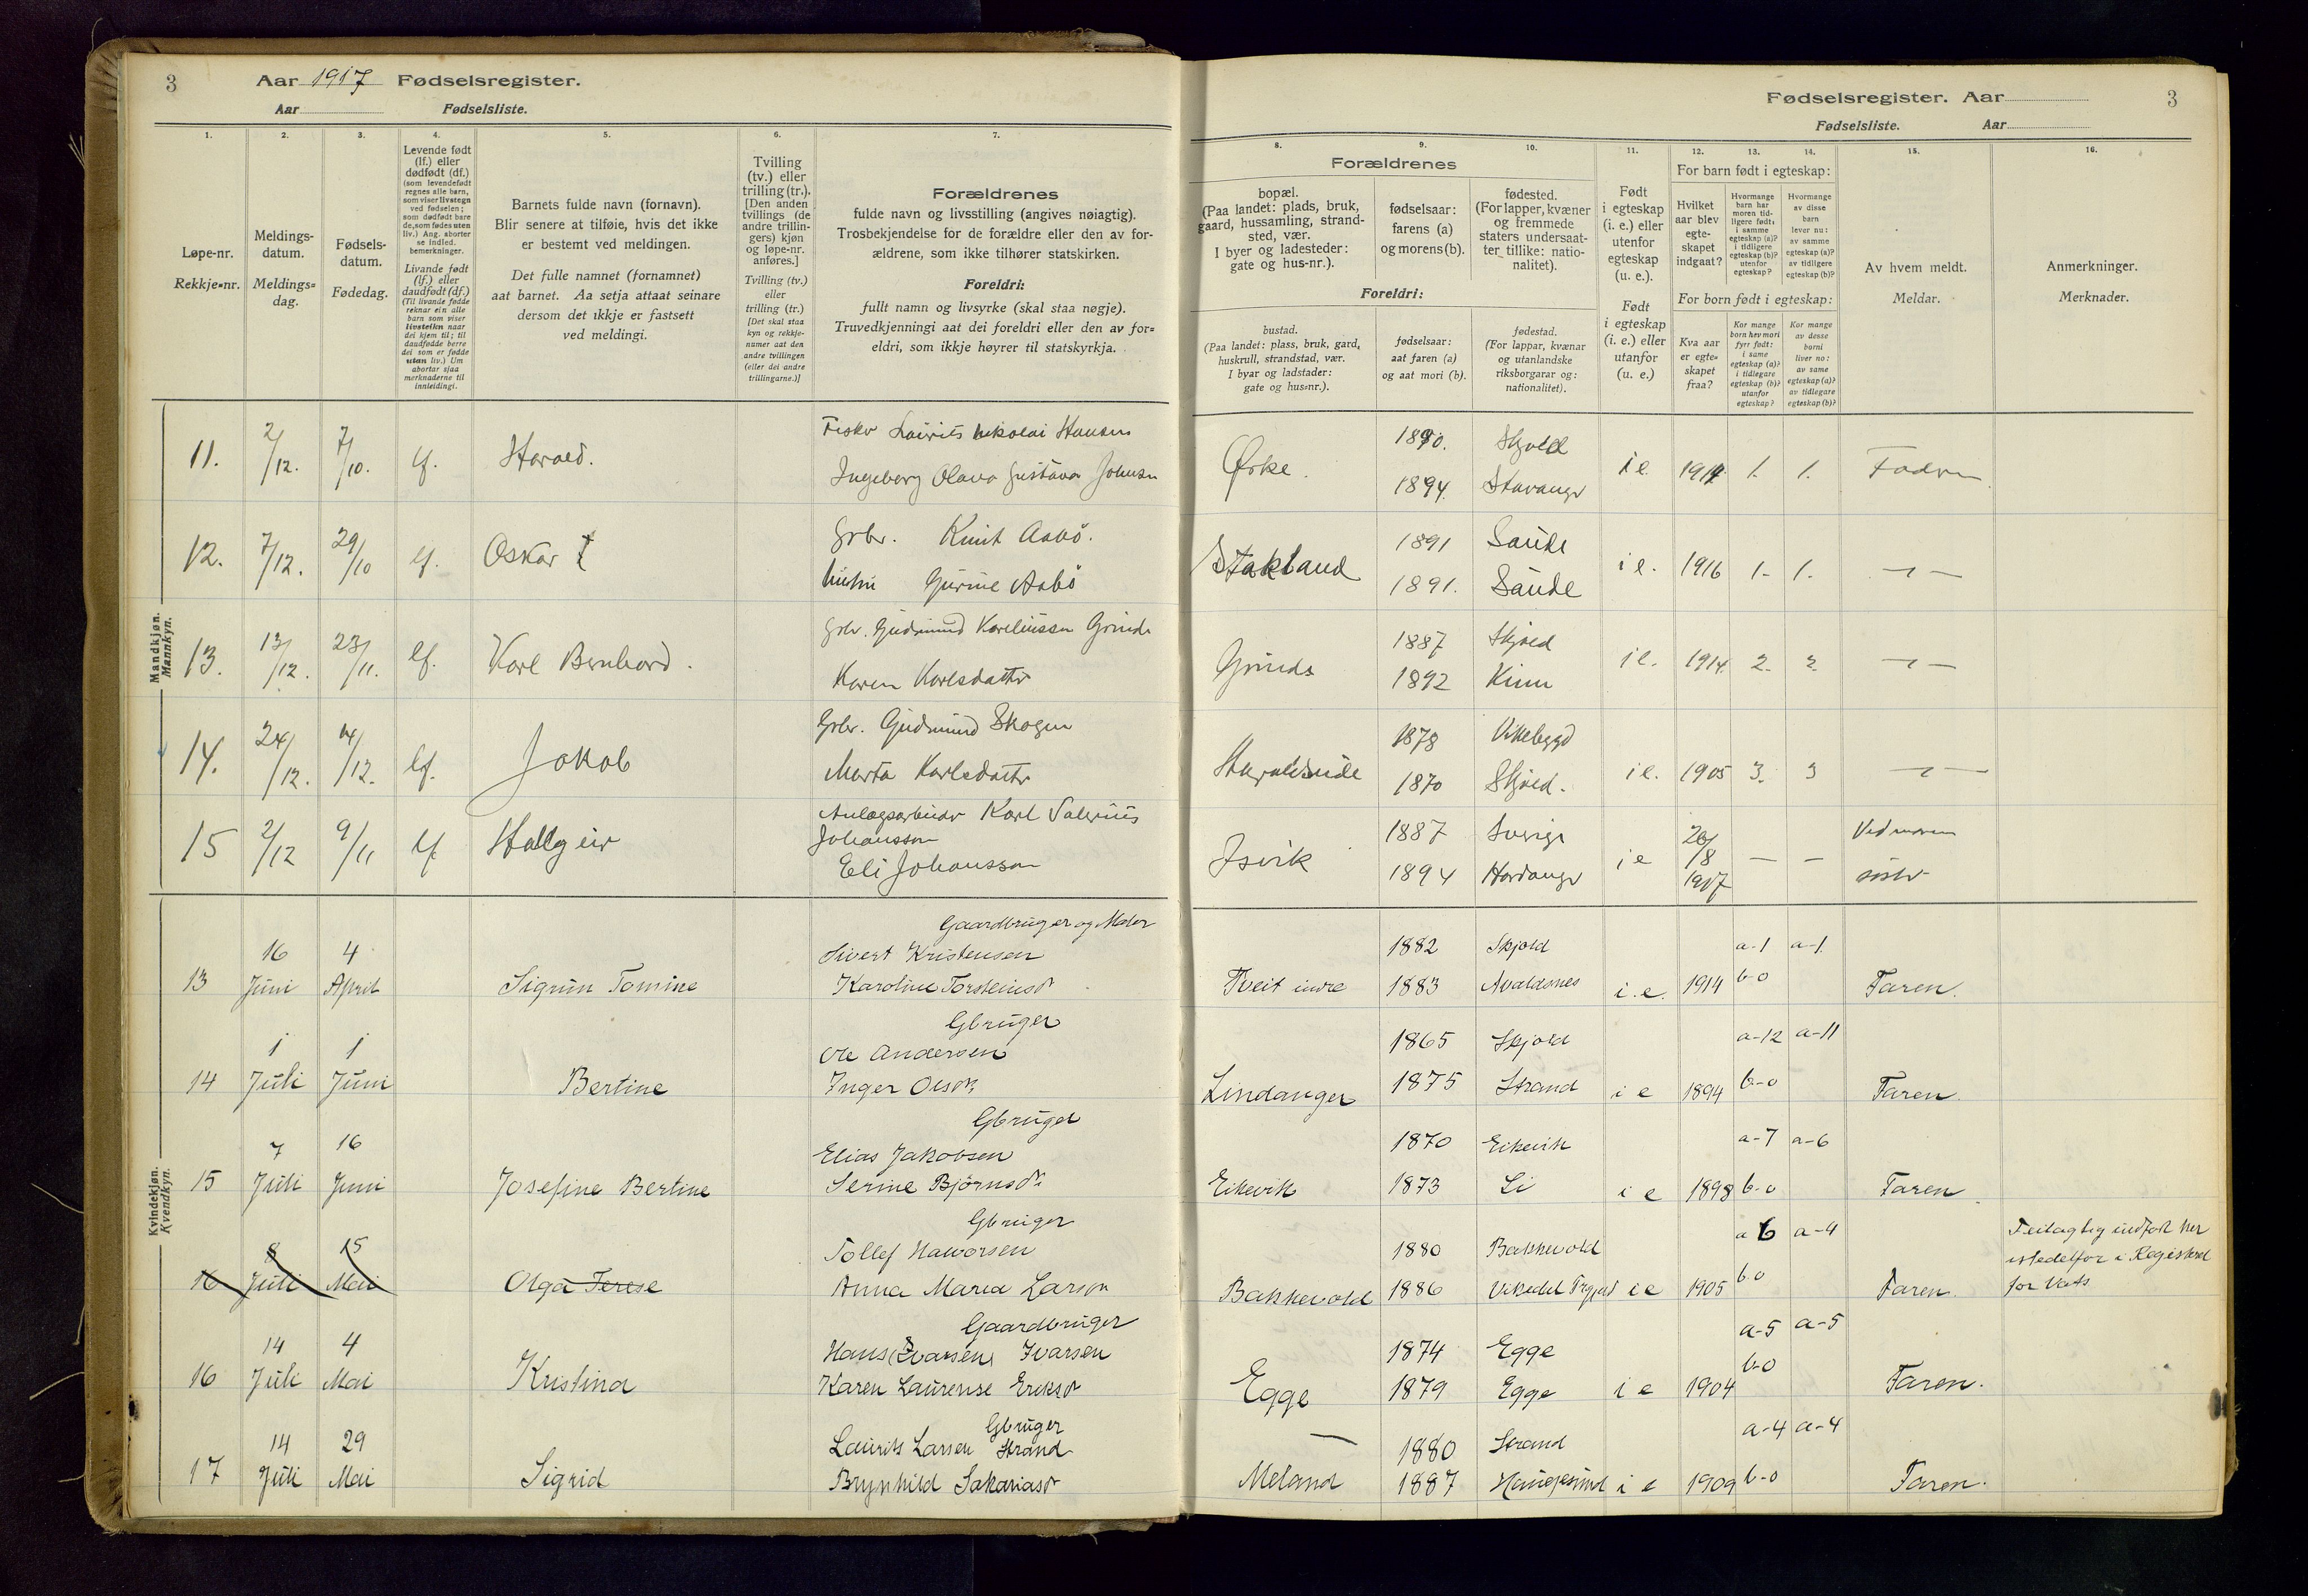 3 Aar 1917 Fødselsregister.
Aar Fødselsliste.
1. 2. 3. 4. 5. 6. 7.
Løpe-nr.
Rekkje-nr.
Meldings-
datum.
Meldings-
dag.
Fødsels-
datum.
Fødedag.
Levende født
(lf.) eller
dødfødt (df.)
(som levendefødt
regnes alle barn,
som viser livstegn
ved fødselen;
som dødfødt bare
de, som fødes uten
liv.) Ang. aborter
se indled.
bemerkninger.
Livande født
(lf.) eller
daudfødt (df.)
(Til livande fødde
reknar ein alle
barn som viser
livsteikn naar
dei kjem til; til
daudfødde berre
dei som er fødde
utan liv.) Um
abortar sjaa
merknaderne til
innleidingi.
Barnets fulde navn (fornavn).
Blir senere at tilføie, hvis det ikke
er bestemt ved meldingen.
Det fulle namnet (fornamnet)
aat barnet. Aa setja attaat seinare
dersom det ikkje er fastsett
ved meldingi.
Tvilling
(tv.) eller
trilling (tr.).
[Den anden
tvillings (de
andre trillin-
gers) kjøn
og løpe-nr.
anføres.]
Tvilling (tv.)
eller
trilling (tr.)
[Det skal staa
kyn og rekkje-
numer aat den
andre tvillingen
(eller dei andre
trillingarne.)]
Forældrenes
fulde navn og livsstilling (angives nøiagtig).
Trosbekjendelse for de forældre eller den av for-
ældrene, som ikke tilhører statskirken.
Foreldri:
fullt namn og livsyrke (skal staa nøgje).
Truvedkjenningi aat dei foreldri eller den av for-
eldri, som ikkje høyrer til statskyrkja.
Mandkjøn.
Mannkyn.
11. 2/12. 7/10. lf. Harald. Fisker Laurits Nikolai Hansen
Ingeborg Olava Gustava Johnsen
12. 7/12. 29/10 lf. Oskar † Gbr. Knut Aabö.
hustru Gurine Aabö
13. 13/12. 23/11. lf. Karl Bernhard. Gbr. Gudmund Kareliussen Grinde
Karen Karlsdatter
14. 24/12. 14/12. lf. Jakob Gbr. Gudmund Skogen
Marta Karlsdatter
15 2/12 9/11 lf. Hallgeir Anlægsarbeider Karl Valerius
Johansson
Eli Johansson
Kvindekjøn.
Kvendkyn.
Gaardbruger og Maler
13 16 Juni 4 April Sigrun Tomine Sivert Kristensen
Karoline Torsteinsdr
Gbruger
14 1 Juli 1 Juni Bertine Ole Andersen
Inger Olsdr
Gbruger
15 7 Juli 16 Juni Josefine Bertine Elias Jakobsen
Serine Björnsdr
Gbruger
16 8 Juli 15 Mai Olga Terese Tollef Halvorsen
Anna Maria Larsdr
Gaardbruger
16 14 Juli 4 Mai Kristina Hans (Ivarsen) Ivarsen
Karen Laurense Eriksdr
Gbruger
17 14 Juli 29 Mai Sigrid Laurits Larsen Strand
Brynhild Sakariasdr
Fødselsregister. Aar 3
Fødselsliste. Aar
8. 9. 10. 11. 12. 13. 14. 15. 16.
Forældrenes
bopæl.
(Paa landet: plads, bruk,
gaard, hussamling, strand-
sted, vær.
I byer og ladesteder:
gate og hus-nr.).
fødselsaar:
farens (a)
og morens (b).
fødested.
(For lapper, kvæner
og fremmede
staters undersaat-
ter tillike: natio-
nalitet).
Foreldri:
bustad.
(Paa landet: plass, bruk, gard,
huskrull, strandstad, vær.
I byar og ladstader:
gate og hus-nr.).
fødselsaar:
aat faren (a)
og aat mori (b).
fødestad.
(For lappar, kvænar
og utanlandske
riksborgarar og:
nationalitet).
Født
i egteskap
(i. e.) eller
utenfor
egteskap
(u. e.).
Født
i egteskap
(i. e.) eller
utanfor
(u. e.)
For barn født i egteskap:
Hvilket
aar blev
egte-
skapet
indgaat?
Hvormange
barn har
moren tid-
ligere født:
i samme
egteskap (a)?
i tidligere
egteskap (b)?
utenfor
egteskap?
Hvormange
av disse
barn
lever nu:
av samme
egteskap (a)?
av tidligere
egteskap (b)?
For born født i egteskap:
Kva aar
er egte-
skapet
fraa?
Kor mange
born hev mori
fyrr født:
i same
egteskap (a)?
i tidlegare
egteskap (b)?
utanfor
egteskap?
Kor mange
av desse
borni
liver no:
av same
egteskap (a)?
av tidlegare
egteskap (b)?
Av hvem meldt.
Meldar.
Anmerkninger.
Merknader.
1890. Skjold
Ørke. 1894. Stavanger i e 1914 1. 1. Fadren
1891 Saude
Stakland 1891. Saude i e. 1916 1. 1. — " —
1887 Skjold
Grinde 1892 Kinn i e. 1914 2. 2. — " —
1878 Vikebygd
Haraldseide 1870 Skjold. i e. 1905 3. 3 — " —
1887 Sverige 26/8 Ved moren
Isvik 1894 Hardanger i e 1917 — — søster
1882 Skjold a-1 a-1
Tveit indre 1883 Avaldsnes i.e. 1914 b-0 Faren.
1865 Skjold a-12 a-11
Lindanger 1875 Strand i e 1894 b-0 Faren.
1870 Eikevik a-7 a-6
Eikevik 1873 Li i e 1898 b-0 Faren
1880 Bakkevold a 6 a-4 Feilagtig indført her
istedetfor i Registeret
Bakkevold 1886 Vikedal i e 1905 b-0 Faren. for Vats
1874 Egge a-5 a-5
Egge 1879 Egge i e 1904 b-0 Faren.
— 1880 Strand a-4 a-4
Meland 1887 Haugesund i e 1909 b-0 Faren.